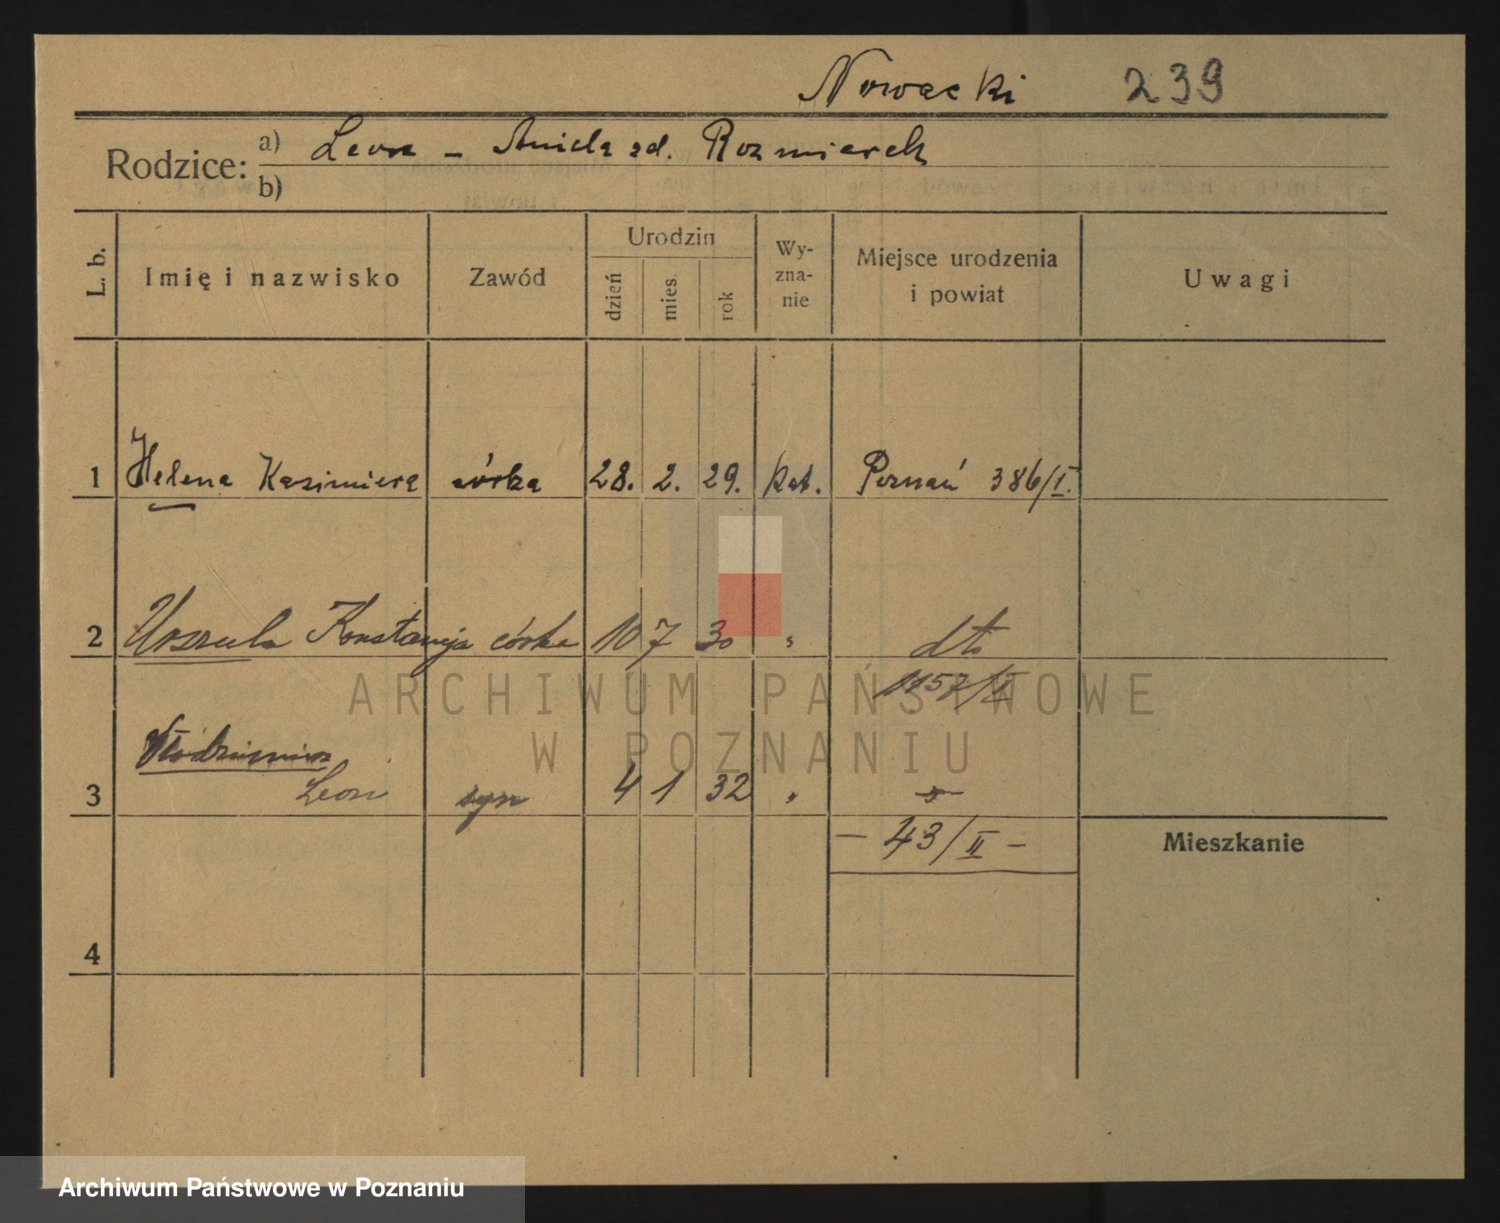 Nowacki 239
Rodzice: a) Leon - Aniela zd. Rozmiarek
b)
L. b.
Imię i nazwisko
Zawód
Urodzin
dzień
mies.
rok
Wy-
zna-
nie
Miejsce urodzenia
i powiat
Uwagi
1 Helena Kazimiera córka 28. 2. 29. kat. Poznań 386/I.
2 Urszula Konstancja córka 10 7 30 " dto
1157/II
Włodzimierz
3 Leon syn 4 1 32 "
- 43/II -
Mieszkanie
4
ARCHIWUM PAŃSTWOWE
W POZNANIU
Archiwum Państwowe w Poznaniu